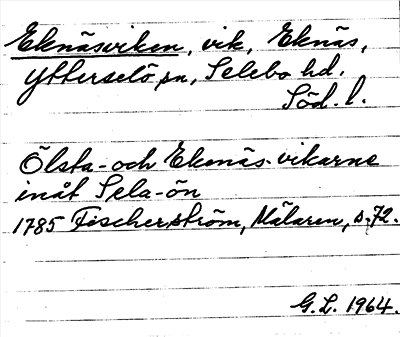 Eknäsviken, vik, Eknäs,
Ytterselö sn, Selebo hd.
Söd. l.
Ölsta- och Eknäs-vikarne
inåt Sela-ön
1785 Fischerström, Mälaren, s. 72.
G.L. 1964.